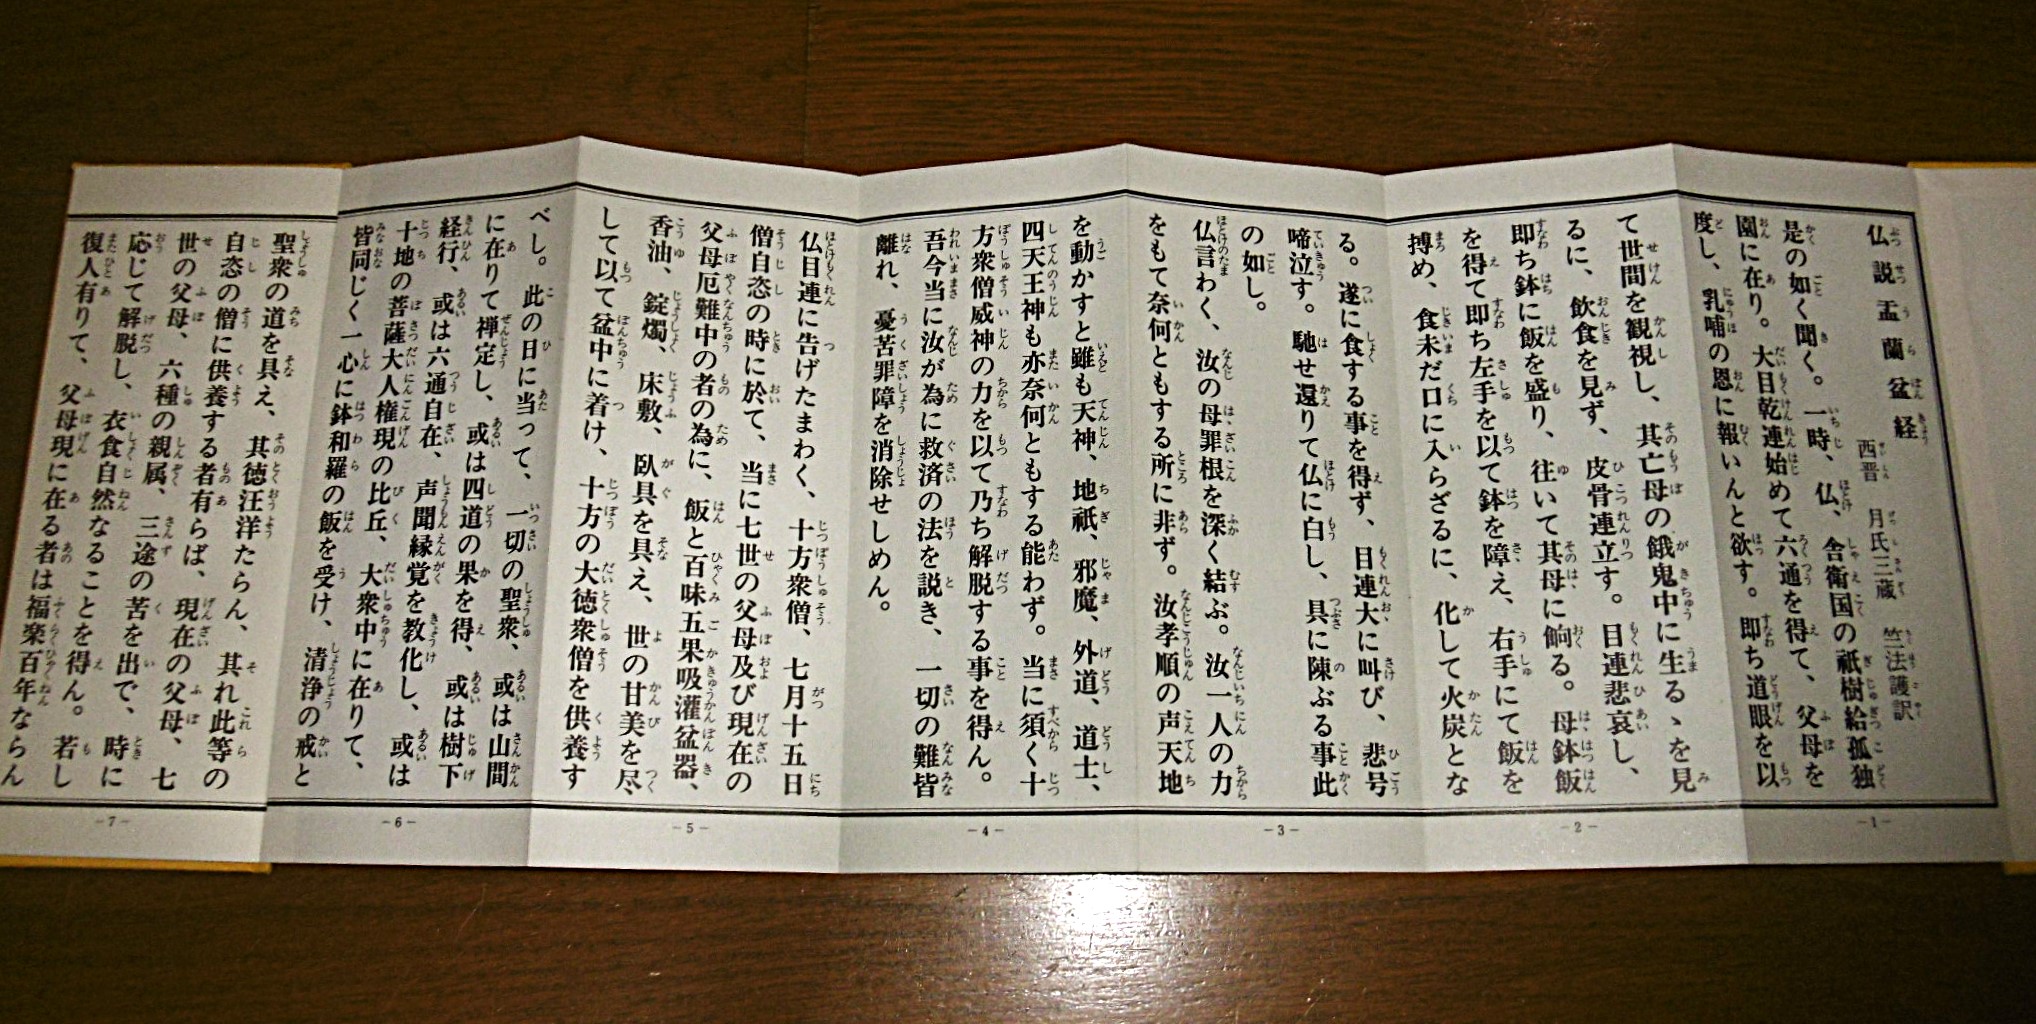 仏説盂蘭盆経
西晋 月氏三蔵 竺法護訳
是の如く聞く。一時、仏、舎衛国の祇樹給孤独
園に在り。大目乾連始めて六通を得て、父母を
度し、乳哺の恩に報いんと欲す。即ち道眼を以
-1-
て世間を観視し、其亡母の餓鬼中に生るゝを見
るに、飲食を見ず、皮骨連立す。目連悲哀し、
即ち鉢に飯を盛り、往いて其母に餉る。母鉢飯
を得て即ち左手を以て鉢を障え、右手にて飯を
摶め、食未だ口に入らざるに、化して火炭とな
-2-
る。遂に食する事を得ず、目連大に叫び、悲号
啼泣す。馳せ還りて仏に白し、具に陳ぶる事此
の如し。
仏言わく、汝の母罪根を深く結ぶ。汝一人の力
をもて奈何ともする所に非ず。汝孝順の声天地
-3-
を動かすと雖も天神、地祇、邪魔、外道、道士、
四天王神も亦奈何ともする能わず。当に須く十
方衆僧威神の力を以て乃ち解脱する事を得ん。
吾今当に汝が為に救済の法を説き、一切の難皆
離れ、憂苦罪障を消除せしめん。
-4-
仏目連に告げたまわく、十方衆僧、七月十五日
僧自恣の時に於て、当に七世の父母及び現在の
父母厄難中の者の為に、飯と百味五果汲灌盆器、
香油、錠燭、床敷、臥具を具え、世の甘美を尽
して以て盆中に着け、十方の大徳衆僧を供養す
-5-
べし。此の日に当って、一切の聖衆、或は山間
に在りて禅定し、或は四道の果を得、或は樹下
経行、或は六通自在、声聞縁覚を教化し、或は
十地の菩薩大人権現の比丘、大衆中に在りて、
皆同じく一心に鉢和羅の飯を受け、清浄の戒と
-6-
聖衆の道を具え、其徳汪洋たらん、其れ此等の
自恣の僧に供養する者有らば、現在の父母、七
世の父母、六種の親属、三途の苦を出で、時に
応じて解脱し、衣食自然なることを得ん。若し
復人有りて、父母現に在る者は福楽百年ならん
-7-